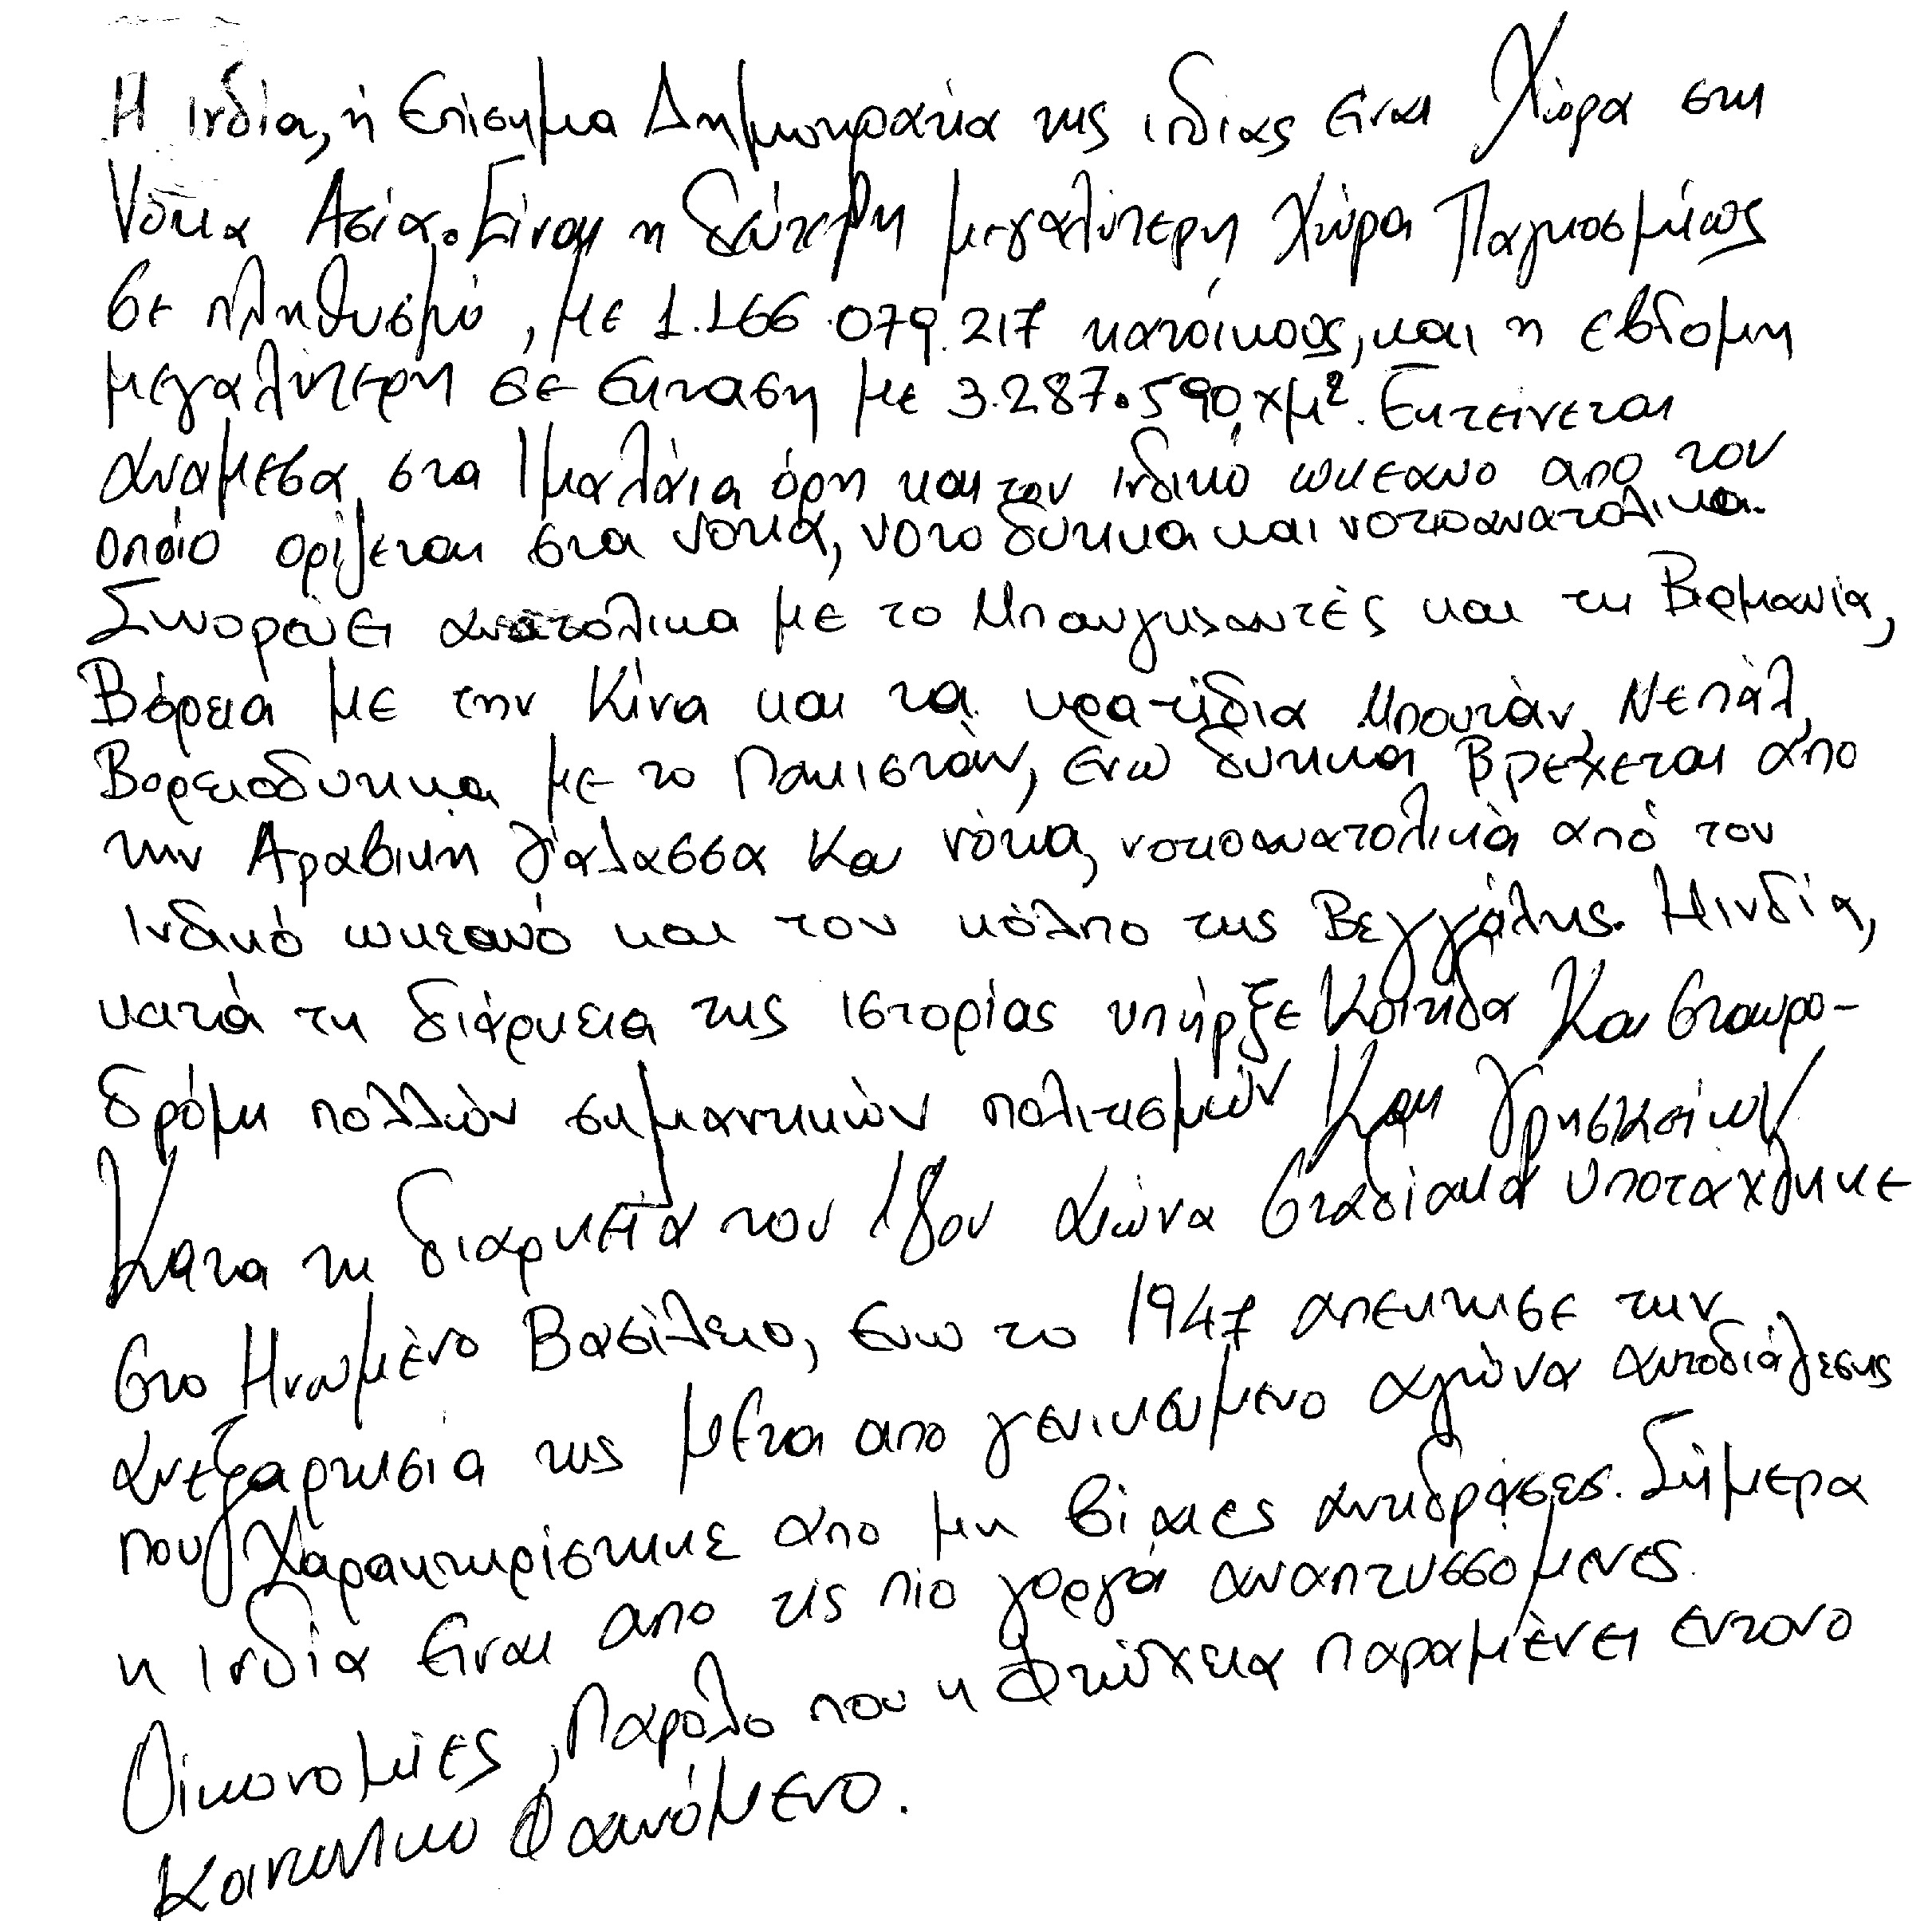 Η ινδία, ή επίσημα Δημοκρατία της ινδίας είναι Χώρα στη
Νότια Ασία. Είναι η δεύτερη μεγαλύτερη Χώρα Παγκοσμίως
σε πληθυσμό, με 1.166.079.217 κατοίκους, και η εβδομη
μεγαλύτερη σε εκταση με 3.287.590 χμ². Εκτείνεται
αναμεσα στα Ιμαλάια όρη και τον ινδικό ωκεανο απο τον
οποίο ορίζεται στα νοτια, νοτοδυτικα και νοτιοανατολικα.
Συνορεύει ανατολικα με το Μπανγκλαντές και τη Βιρμανία,
Βόρεια με την Κίνα και τα κρατίδια Μπουτάν, Νεπάλ,
Βορειοδυτικα με το Πακιστάν, ενω δυτικα Βρέχεται απο
την Αραβική θάλασσα Και νότια, νοτιοανατολικά από τον
Ινδικό ωκεανό και τον κόλπο της Βεγγάλης. Η ινδία,
κατά τη διάρκεια της ιστορίας υπήρξε Κοιτίδα Και σταυρο-
δρόμι πολλών σημαντικών πολιτισμών Και θρησκειών
Κατα τη διαρκεια του 18ου Αιώνα σταδίακα υποτάχθηκε
στο Ηνωμένο Βασίλειο, ενω το 1947 απεκτησε την
ανεξαρτησία της μετα απο γενικευμενο αγώνα αυτοδιάθεσης
που Χαρακτηρίστηκε απο μη βίαιες αντιδράσεις. Σήμερα
η Ινδία είναι απο τις πιο γοργά αναπτυσσομενες
Οικονομίες, Παρόλο που η Φτώχεια παραμένει εντονο
Κοινωνικο Φαινόμενο.